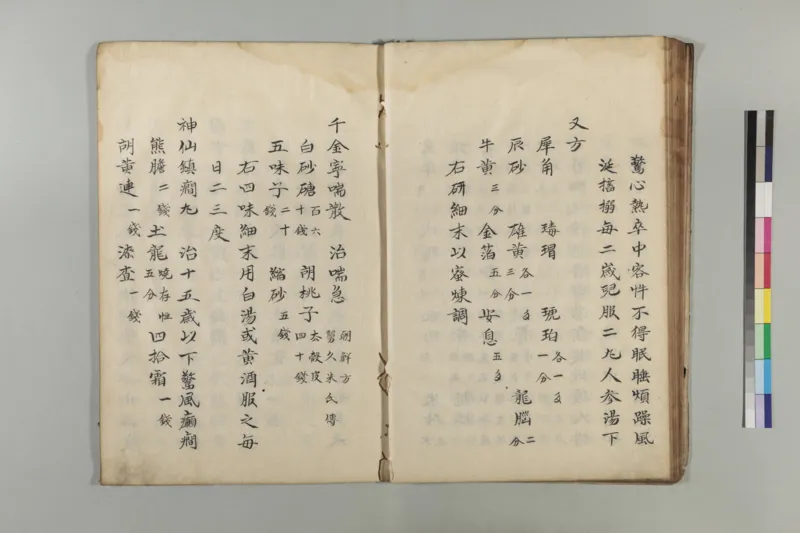 驚心熱卒中客忤不得眠睡煩躁風
涎搐搦每二歳児服二丸人参湯下
又方
犀角 瑇瑁 琥珀各一匁
辰砂 雄黄各一匁三分 龍腦二分
牛黄三分 金箔五分 安息五匁
右研細末以蜜煉調
千金寧喘散 治喘急 朝鮮方 賢久米氏傳
白砂糖百六十錢 胡桃子去殻皮四十錢
五味子二十錢 縮砂五錢
右四味細末用白湯或黄酒服之每
日二三度
神仙鎮癇丸 治十五歳以下驚風癲癇
熊膽二錢 土龍焼存性五分 四拾霜一錢
胡黄連一錢 漆査一錢